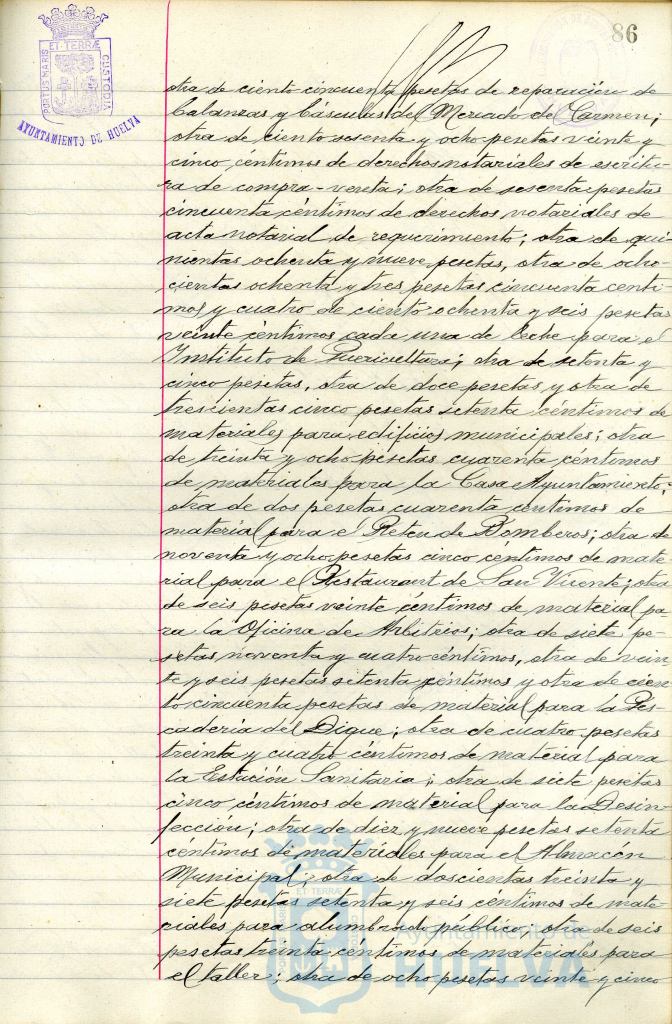 86
PORTUS MARIS ET TERRÆ CUSTODIA
AYUNTAMIENTO DE HUELVA
otra de ciento cincuenta pesetas de reparación de
balanzas y básculas del Mercado del Carmen;
otra de ciento sesenta y ocho pesetas veinte y
cinco céntimos de derechos notariales de escritu-
ra de compra-venta; otra de sesenta pesetas
cincuenta céntimos de derechos notariales de
acta notarial de requerimiento; otra de qui-
nientas ochenta y nueve pesetas, otra de ocho-
cientas ochenta y tres pesetas cincuenta centi-
mos y cuatro de ciento ochenta y seis pesetas
veinte céntimos cada una de leche para el
Instituto de Puericultura; otra de setenta y
cinco pesetas, otra de doce pesetas y otra de
trescientas cinco pesetas setenta céntimos de
materiales para edificios municipales; otra
de treinta y ocho pesetas cuarenta céntimos
de materiales para la Casa Ayuntamiento;
otra de dos pesetas cuarenta centimos de
material para el Reten de Bomberos; otra de
noventa y ocho pesetas cinco céntimos de mate
rial para el Restaurant de San Vicente; otra
de seis pesetas veinte céntimos de material pa
ra la Oficina de Arbitrios; otra de siete pe-
setas noventa y cuatro céntimos, otra de vein
te y seis pesetas setenta céntimos y otra de cien
to cincuenta pesetas de material para la Pes-
cadería del Dique; otra de cuatro pesetas
treinta y cuatro céntimos de material para
la Estación Sanitaria; otra de siete pesetas
cinco céntimos de material para la Desin-
fección; otra de diez y nueve pesetas setenta
céntimos de materiales para el Almacén
Municipal; otra de doscientas treinta y
siete pesetas setenta y seis céntimos de mate-
riales para alumbrado público; otra de seis
pesetas treinta céntimos de materiales para
el taller; otra de ocho pesetas veinte y cinco
Ayuntamiento de
HUELVA